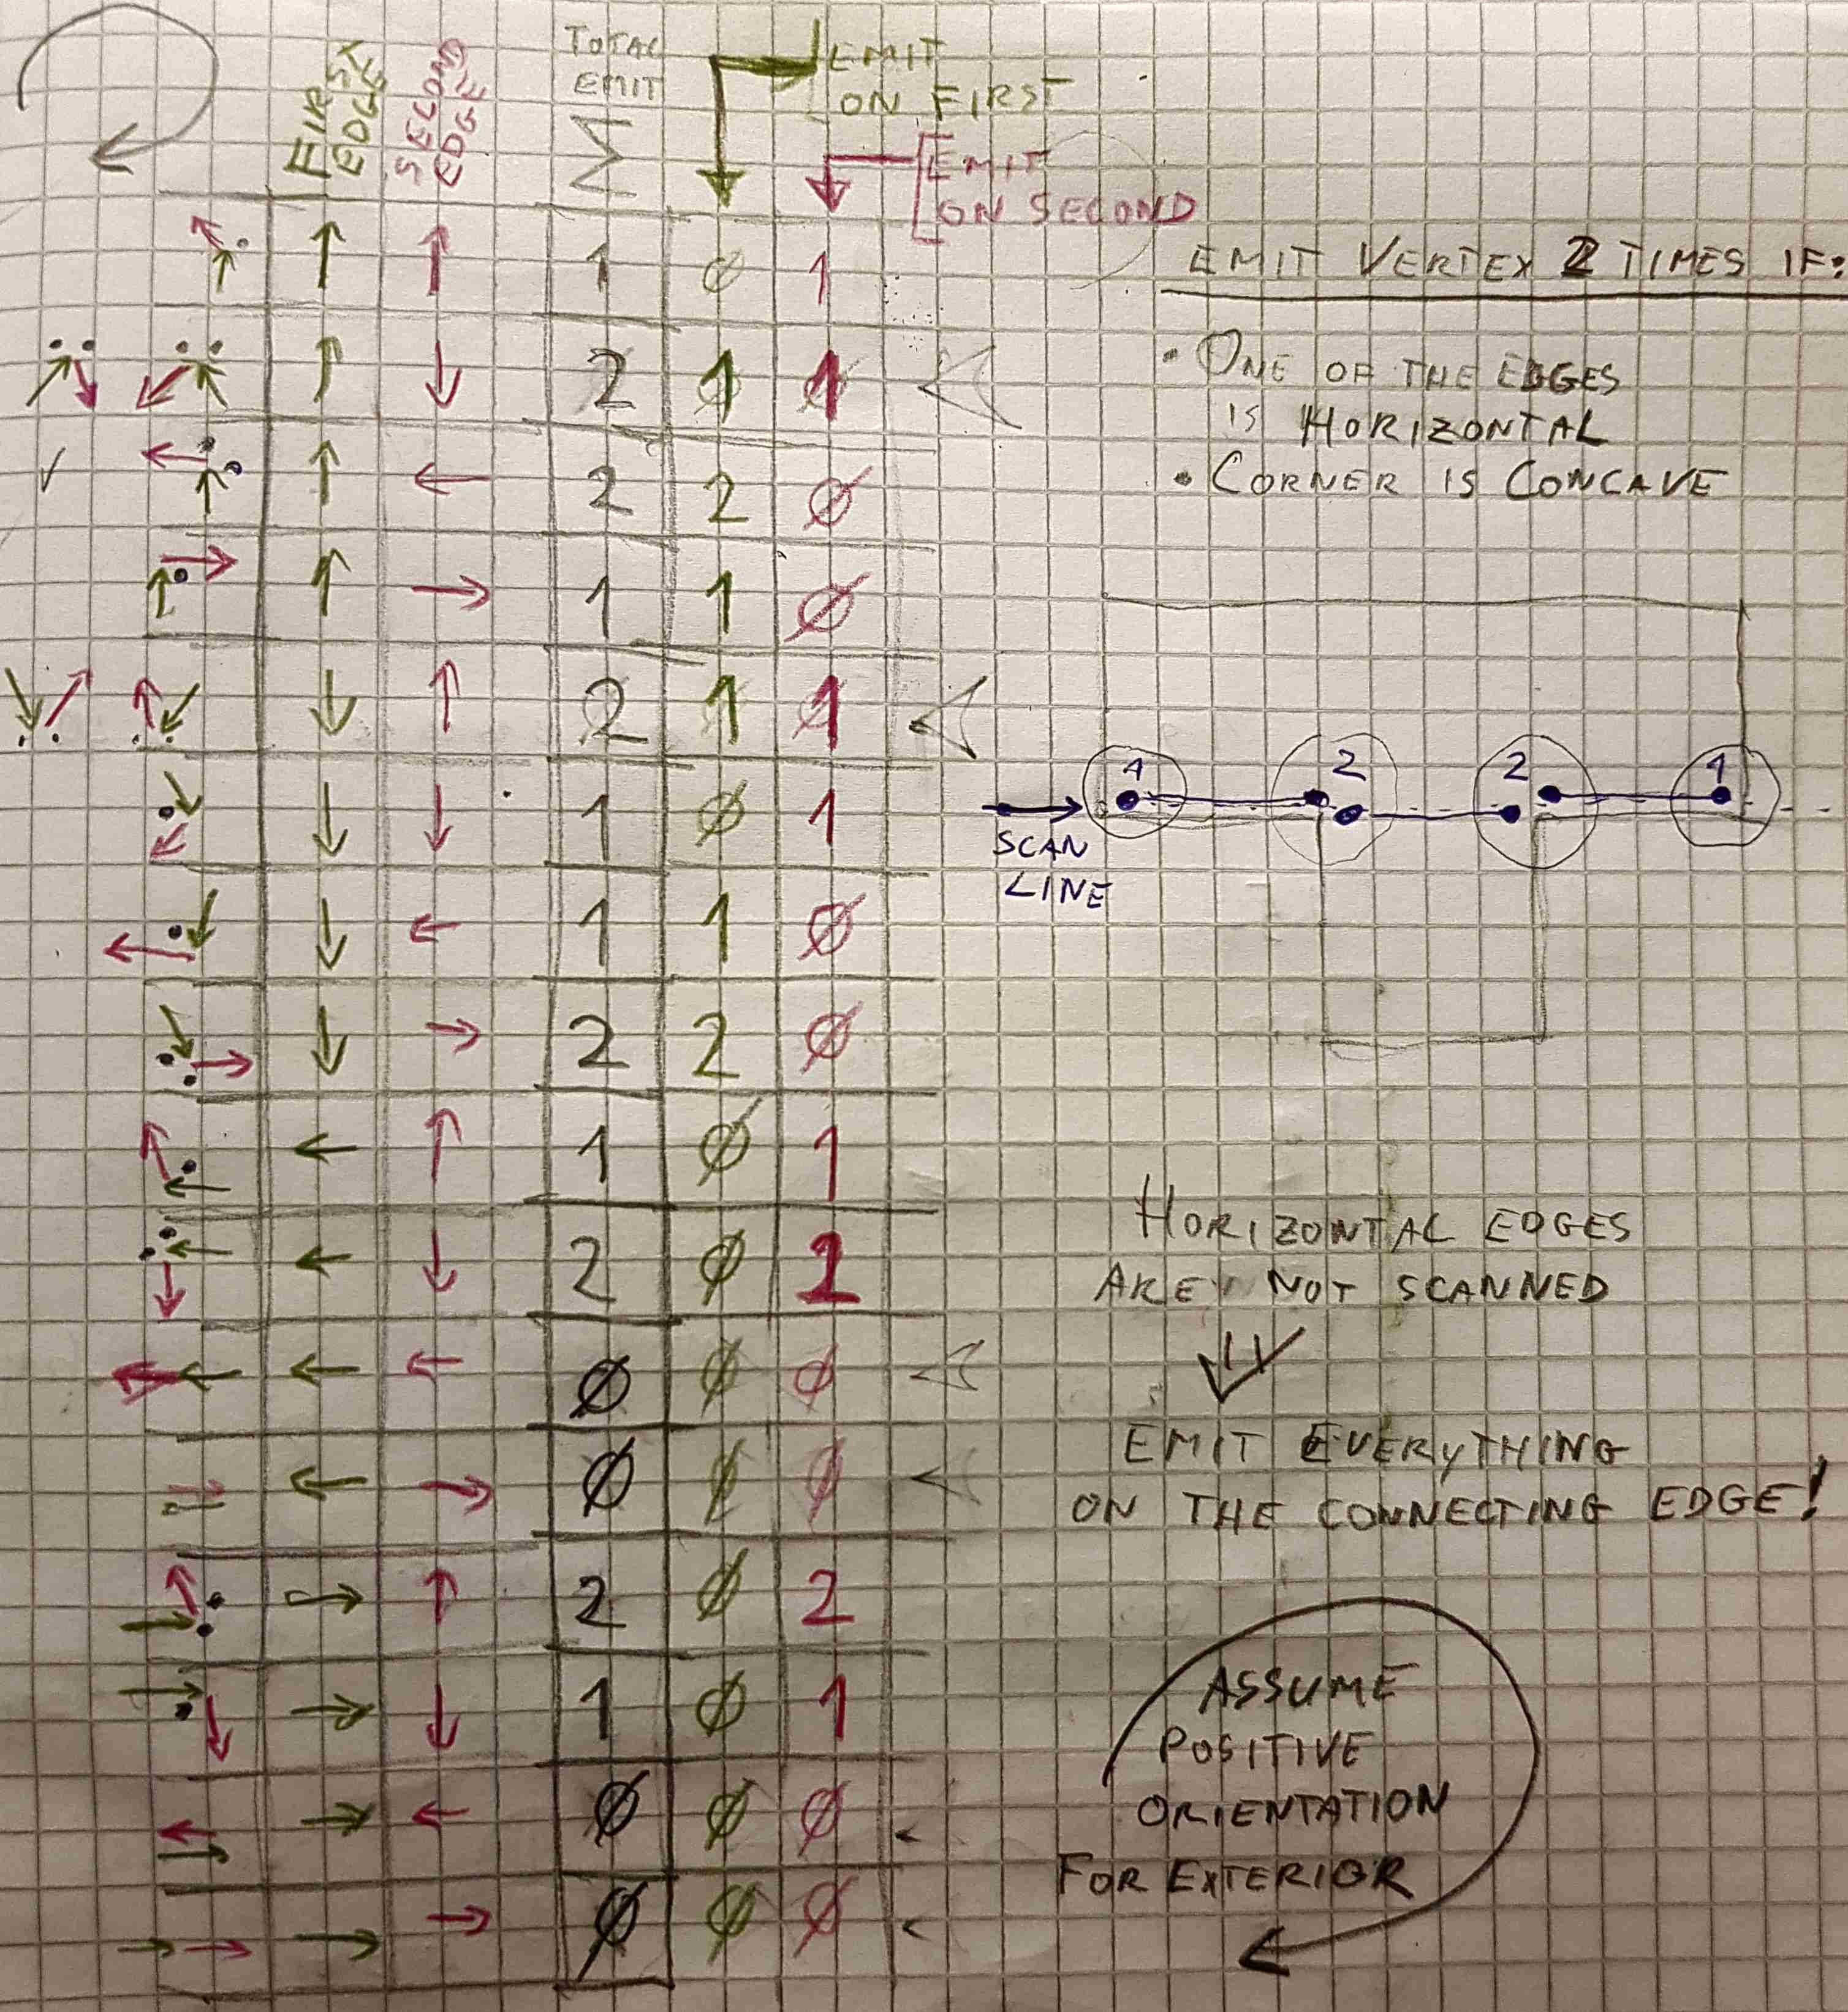 FIRST EDGE
SECOND EDGE
TOTAL EMIT
Σ
EMIT
ON FIRST
EMIT
ON SECOND
↑ ↑ 1 ∅ 1
↑ ↓ 2 1 1
↑ ← 2 2 ∅
↑ → 1 1 ∅
↓ ↑ 2 1 1
↓ ↓ 1 ∅ 1
↓ ← 1 1 ∅
↓ → 2 2 ∅
← ↑ 1 ∅ 1
← ↓ 2 ∅ 2
← ← ∅ ∅ ∅
← → ∅ ∅ ∅
→ ↑ 2 ∅ 2
→ ↓ 1 ∅ 1
→ ← ∅ ∅ ∅
→ → ∅ ∅ ∅
EMIT VERTEX 2 TIMES IF:
• ONE OF THE EDGES
IS HORIZONTAL
• CORNER IS CONCAVE
1 2 2 1
SCAN
LINE
HORIZONTAL EDGES
ARE NOT SCANNED
EMIT EVERYTHING
ON THE CONNECTING EDGE!
ASSUME
POSITIVE
ORIENTATION
FOR EXTERIOR